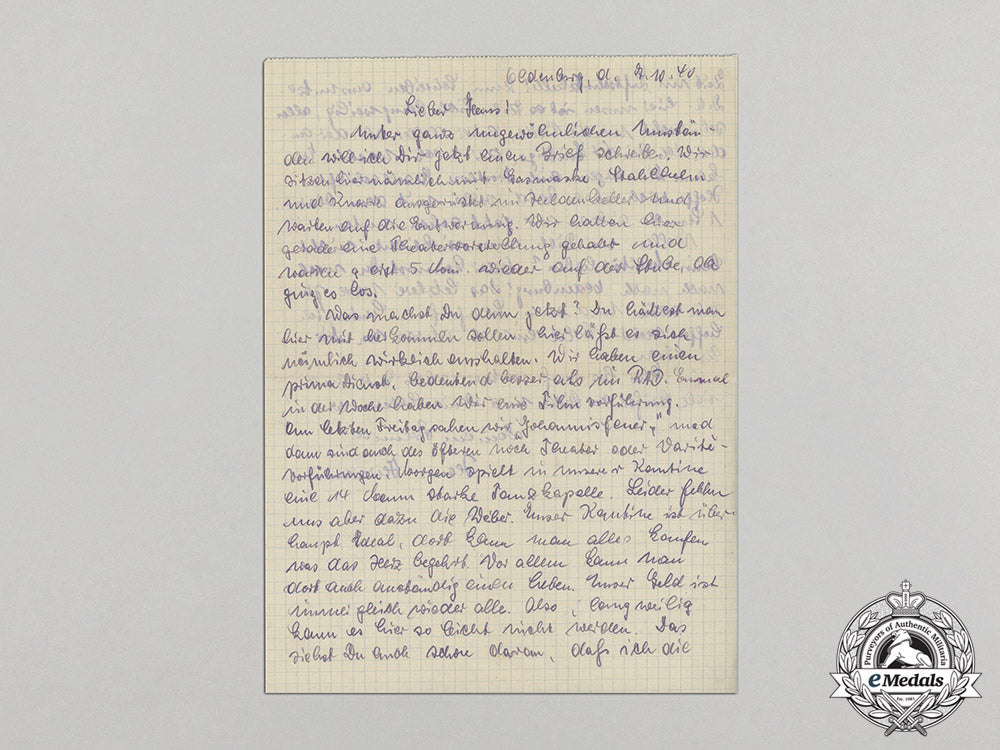 Oldenburg d. 9.10.40
Lieber Hans!
Unter ganz ungewöhnlichen Umstän
den will ich Dir jetzt einen Brief schreiben. Wir
sitzen hier nämlich mit Gasmaske Stahlhelm
und Knarre ausgerüstet im Heldenkeller und
warten auf die Entwarnung. Wir hatten hier
gerade eine Theatervorstellung gehabt und
waren erst 5 Min. wieder auf der Stube, da
ging es los.
Was machst Du denn jetzt? Du hättest man
hier mit herkommen sollen hier läßt es sich
nämlich wirklich aushalten. Wir haben einen
prima Dienst, bedeutend besser als im RAD. Einmal
in der Woche haben wir eine Film vorführung.
Am letzten Freitag sahen wir „Johannisfeuer“, und
dann sind auch des öfteren noch Theater oder Varité-
vorführungen. Morgen spielt in unserer Kantine
eine 14 Mann starke Tanzkapelle. Leider fehlen
uns aber dazu die Weiber. Unser Kantine ist über
haupt Ideal, dort kann man alles kaufen
was das Herz begehrt. Vor allem kann man
dort auch anständig einen heben. Unser Geld ist
immer gleich wieder alle. Also, langweilig
kann es hier so leicht nicht werden. Das
siehst Du auch schon daran, daß ich die
Purveyors of Authentic Militaria
eMedals
Est. 1985